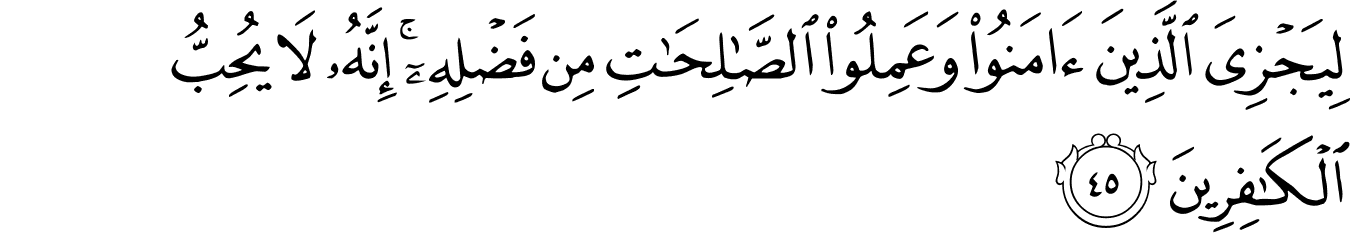 لِيَجْزِىَ ٱلَّذِينَ ءَامَنُوا۟ وَعَمِلُوا۟ ٱلصَّـٰلِحَـٰتِ مِن فَضْلِهِۦٓ ۚ إِنَّهُۥ لَا يُحِبُّ
ٱلْكَـٰفِرِينَ ٤٥